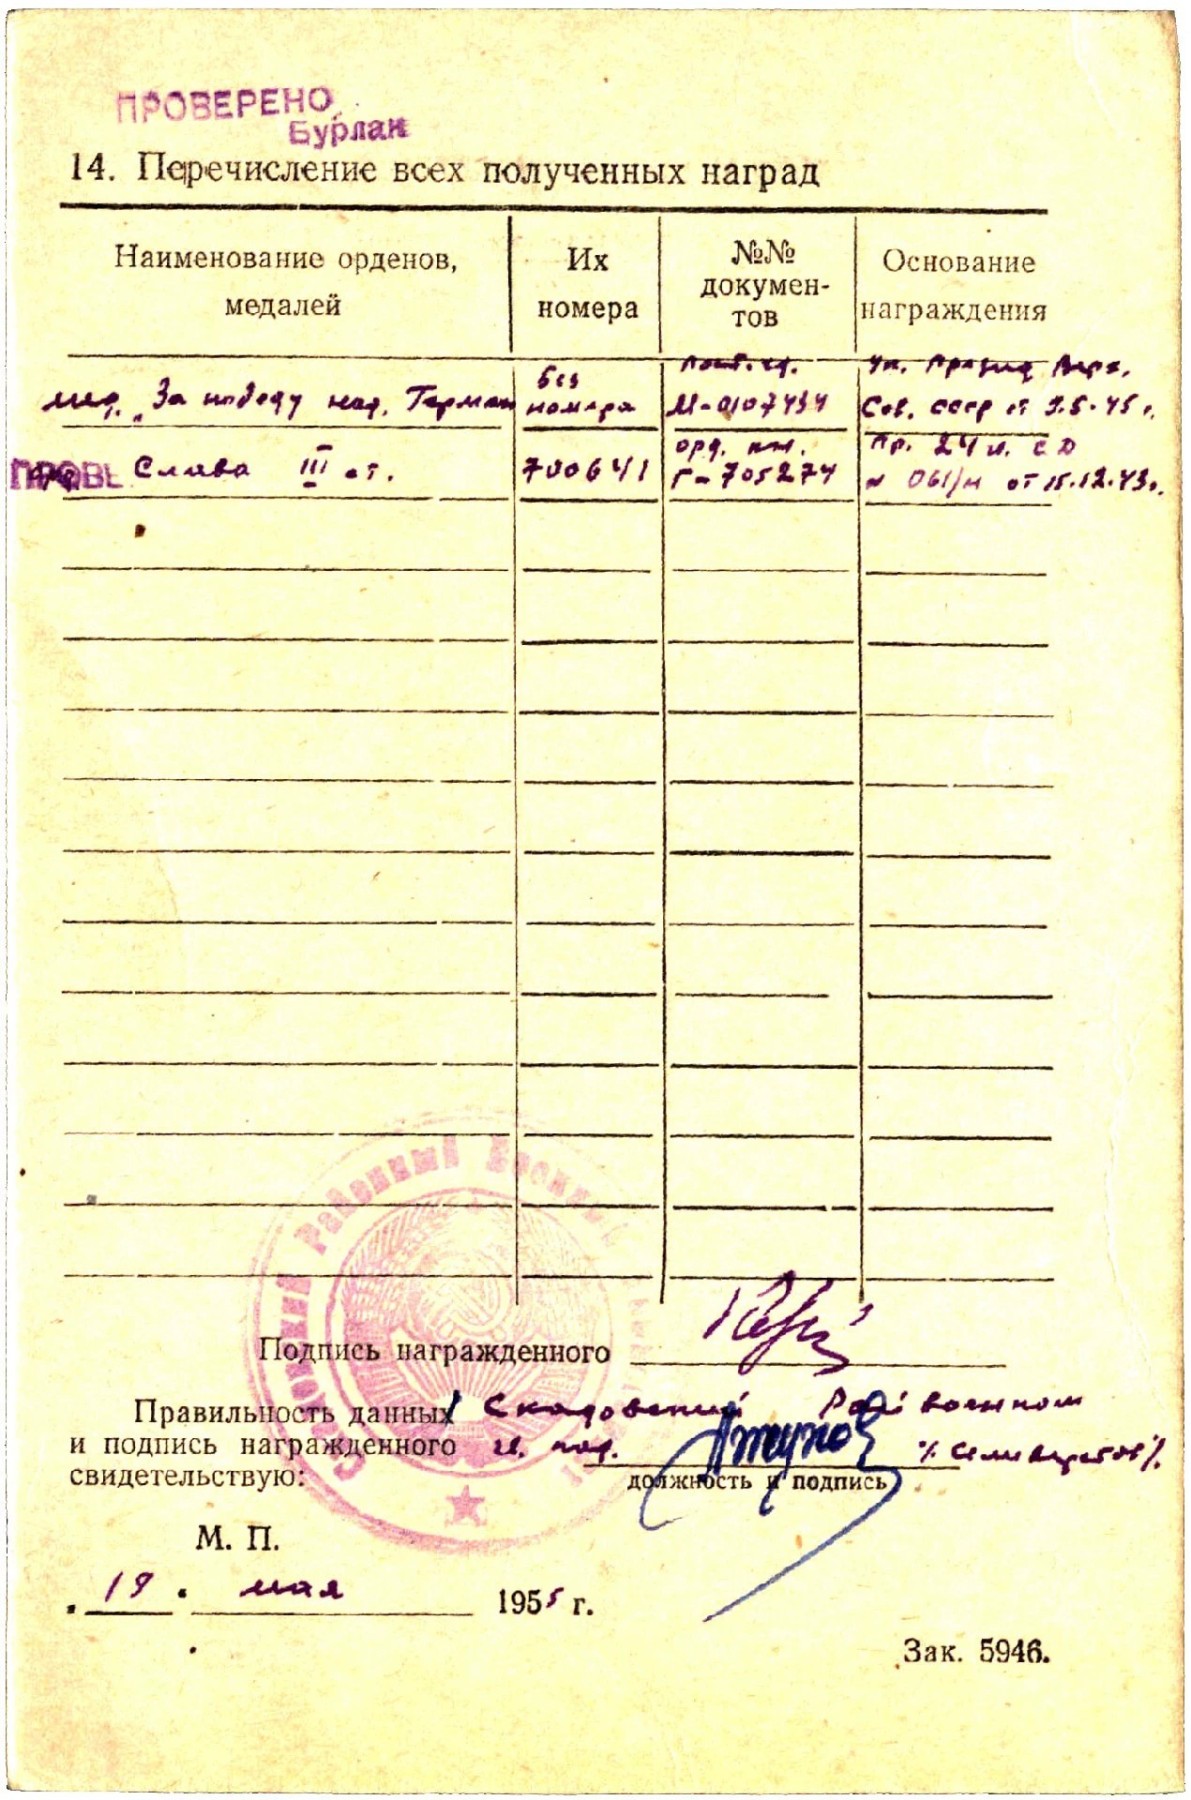 ПРОВЕРЕНО
Бурлак
14. Перечисление всех полученных наград
Наименование орденов, медалей
Их номера
№№ докумен-тов
Основание награждения
мед. „За победу над. Герман
без номера
М-0107434
Ук. Презид Верх.
Сов. СССР от 9.5.45 г.
ПРОВЕ Слава III ст.
700641
орд. кн.
Г-705274
Пр. 24 СД
№ 061/н от 15.12.43г.
Скадовский Районный Военный
Подпись награжденного
Правильность данных
и подпись награжденного
свидетельствую:
Скадовский Рай военком
должность и подпись
М. П.
19 мая 1955 г.
Зак. 5946.